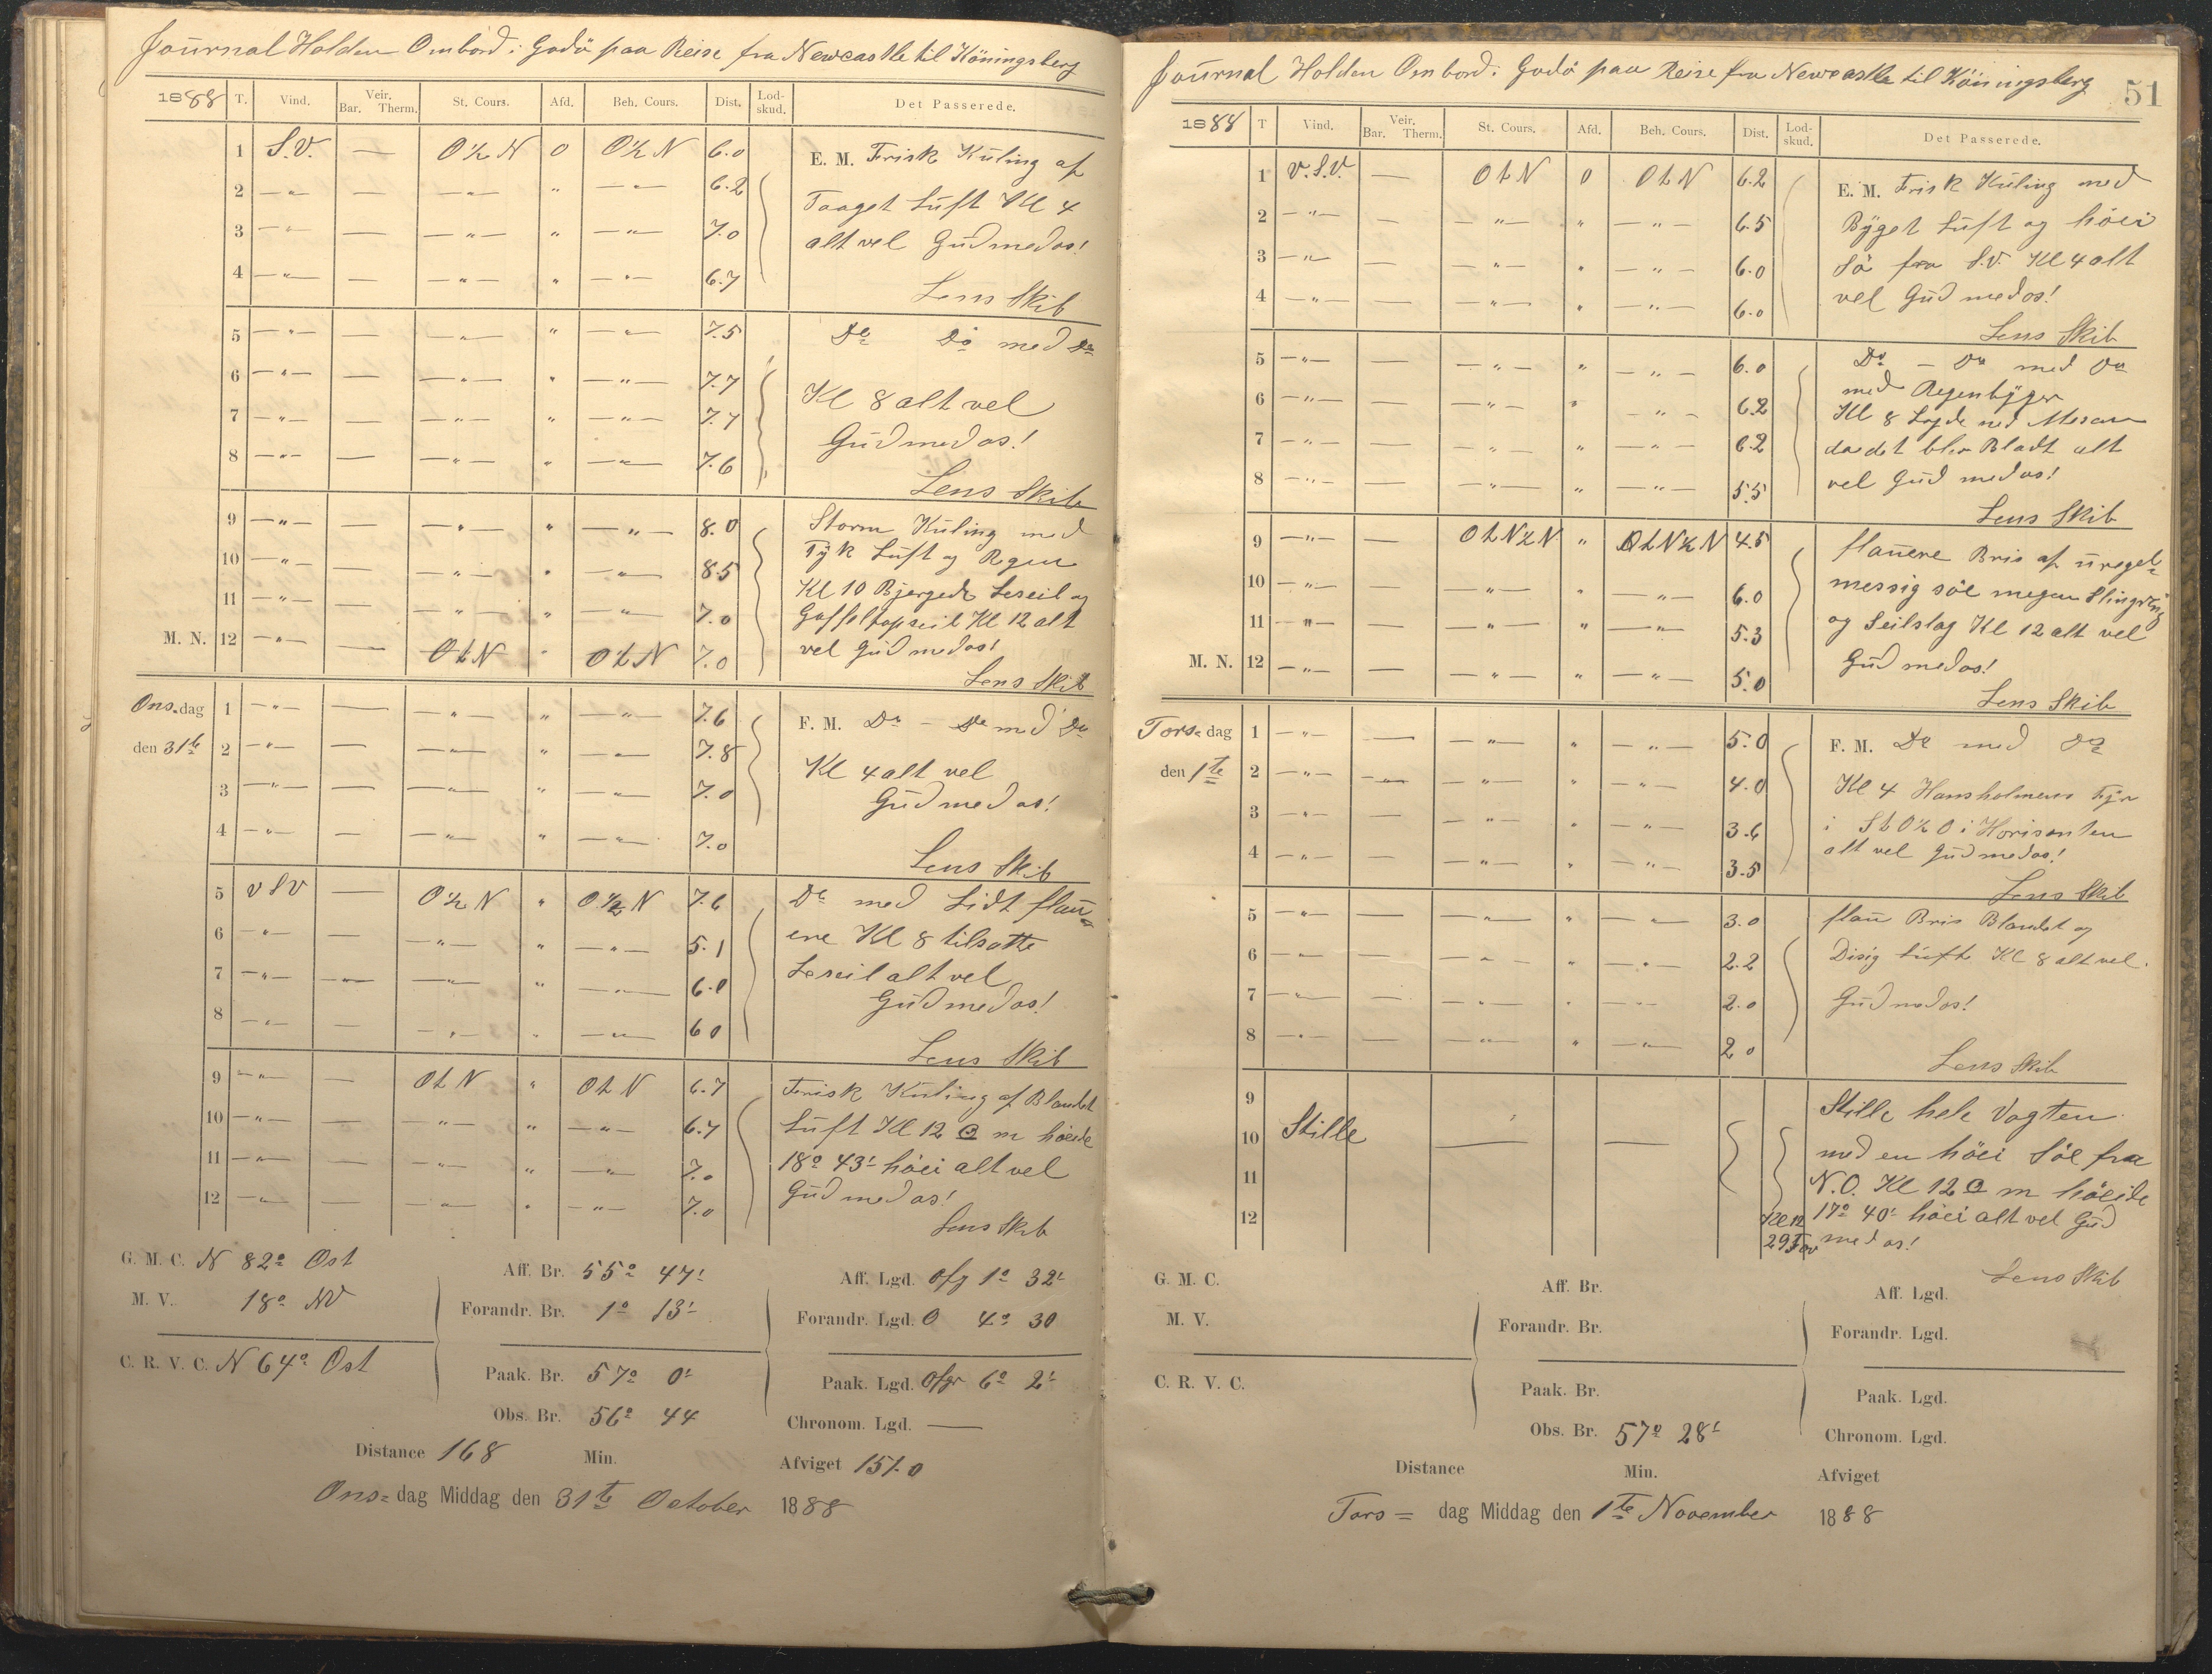 Journal Holden Ombord i Godö paa Reise fra Newcastle til Köningsberg
1888 T. Vind. Veir. Bar. Therm. St. Cours. Afd. Beh. Cours. Dist. Lod-skud. Det Passerede.
1 S.V. — O½N 0 O½N 6.0
2 —"— — —"— " —"— 6.2
3 —"— — —"— " —"— 7.0
4 —"— — —"— " —"— 6.7
E. M. Frisk Kuling af
Taaget Luft Kl 4
alt vel Gud med os!
Lens Skib
5 —"— — —"— " —"— 7.5
6 —"— — —"— " —"— 7.7
7 —"— — —"— " —"— 7.7
8 —"— — —"— " —"— 7.6
Do Do med Do
Kl 8 alt vel
Gud med os!
Lens Skib
9 —"— — —"— " —"— 8.0
10 —"— — —"— " —"— 8.5
11 —"— — —"— " —"— 7.0
M. N. 12 —"— — O t N " O t N 7.0
Storm Kuling med
Tyk Luft og Regn
Kl 10 Bjergede Leseil og
Gaffeltopseil Kl 12 alt
vel Gud med os!
Lens Skib
Ons=dag 1 —"— — —"— " —"— 7.6
den 31te 2 —"— — —"— " —"— 7.8
3 —"— — —"— " —"— 7.0
4 —"— — —"— " —"— 7.0
F. M. Do — Do med Do
Kl 4 alt vel
Gud med os!
Lens Skib
5 V S V — O½N " O½N 7.6
6 —"— — —"— " —"— 5.1
7 —"— —"— —"— " —"— 6.0
8 —"— — —"— " —"— 6 0
Do med Lidt flau=
ere Kl 8 tilsatte
Leseil alt vel
Gud med os!
Lens Skib
9 —"— — O t N " O t N 6.7
10 —"— — —"— " —"— 6.7
11 —"— — —"— " —"— 7.0
12 —"— — —"— " —"— 7.0
Frisk Kuling af Blandet
Luft Kl 12 ☉ m höeide
18° 43' höei alt vel
Gud med os!
Lens Skib
G. M. C. N 82° Ost
M. V. 18° NV
C. R. V. C. N 64° Ost
Aff. Br. 55° 47'
Forandr. Br. 1° 13'
Paak. Br. 57° 0'
Obs. Br. 56° 44
Aff. Lgd. Ofg 1° 32'
Forandr. Lgd. O 4° 30
Paak. Lgd. Ofgr 6° 2'
Chronom. Lgd. —
Distance 168 Min. Afviget 151.0
Ons=dag Middag den 31te October 1888
Journal Holden Ombord i Godö paa Reise fra Newcastle til Köningsberg
51
1888 T Vind. Veir. Bar. Therm. St. Cours. Afd. Beh. Cours. Dist. Lod-skud. Det Passerede.
1 V.S.V. — O t N 0 O t N 6.2
2 —"— — —"— " —"— 6.5
3 —"— — —"— " —"— 6.0
4 —"— — —"— " —"— 6.0
E. M. Frisk Kuling med
Byget Luft og höei
Sö fra S.V. Kl 4 alt
vel Gud med os!
Lens Skib
5 —"— — —"— " —"— 6.0
6 —"— — —"— " —"— 6.2
7 —"— — —"— " —"— 6.2
8 —"— — —"— " —"— 5.5
Do — Do med Do
med Regenbyger
Kl 8 Lagde ned Mesan
da det blev Bladt alt
vel Gud med os!
Lens Skib
9 —"— — O t N ½ N " O t N ½ N 4.5
10 —"— — —"— " —"— 6.0
11 —"— — —"— " —"— 5.3
M. N. 12 —"— — —"— " —"— 5.0
flauere Bris af uregel=
messig söe megen Slingring
og Seilslag Kl 12 alt vel
Gud med os!
Lens Skib
Tors=dag 1 —"— — —"— " —"— 5.0
den 1te 2 —"— —"— —"— " —"— 4.0
3 —"— — —"— " —"— 3.6
4 —"— — —"— " —"— 3.5
F. M. Do med Do
Kl 4 Hansholmens Fyr
i S t O ½ O i Horisonten
alt vel Gud med os!
Lens Skib
5 —"— — —"— " —"— 3.0
6 —"— — —"— " —"— 2.2
7 —"— — —"— " —"— 2.0
8 —"— — —"— " —"— 2.0
flau Bris Blandet og
Disig Luft Kl 8 alt vel.
Gud med os!
Lens Skib
9
10 Stille — —
11
12
Kl 12
29 Fav
Stille hele Vagten
med en höei Söe fra
N.O. Kl 12 ☉ m höeide
17° 40' höei alt vel Gud
med os!
Lens Skib
G. M. C.
M. V.
C. R. V. C.
Aff. Br.
Forandr. Br.
Paak. Br.
Obs. Br. 57° 28'
Aff. Lgd.
Forandr. Lgd.
Paak. Lgd.
Chronom. Lgd.
Distance Min. Afviget
Tors= dag Middag den 1te November 1888